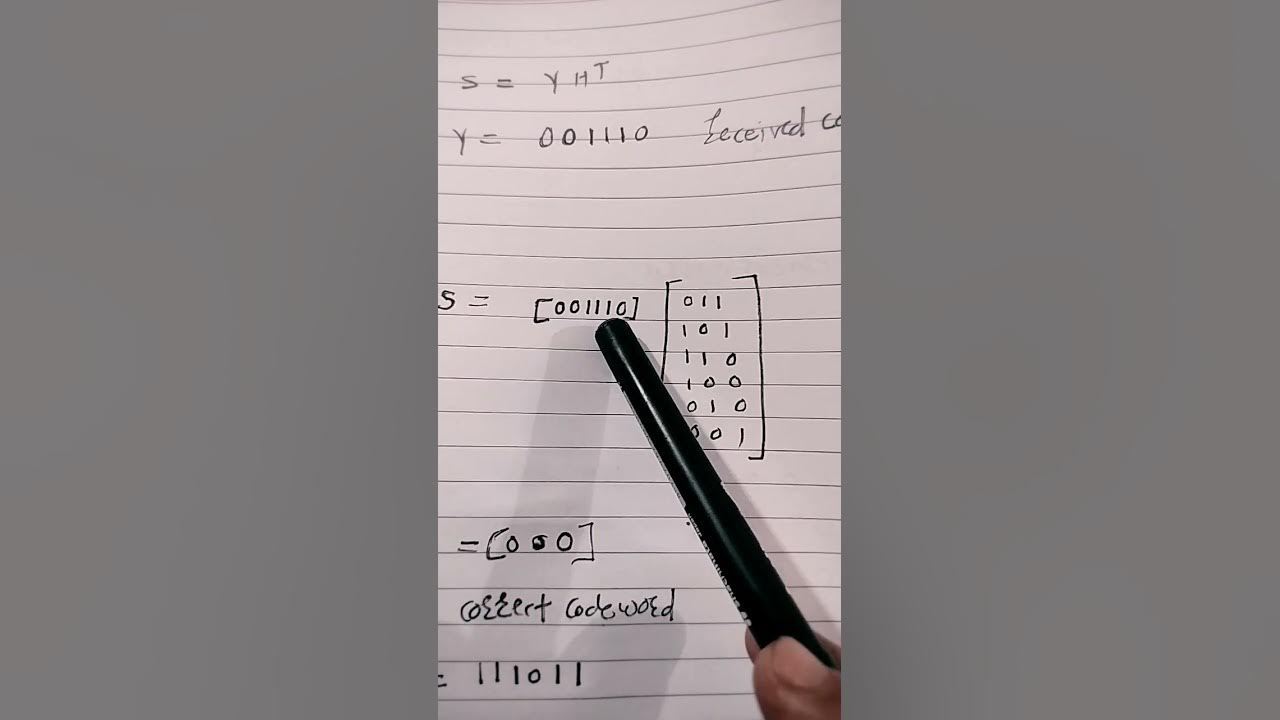 S = Y H^T
Y = 001110 received
S = [001110] [011
101
110
100
010
001]
= [000]
correct codeword
= 111011